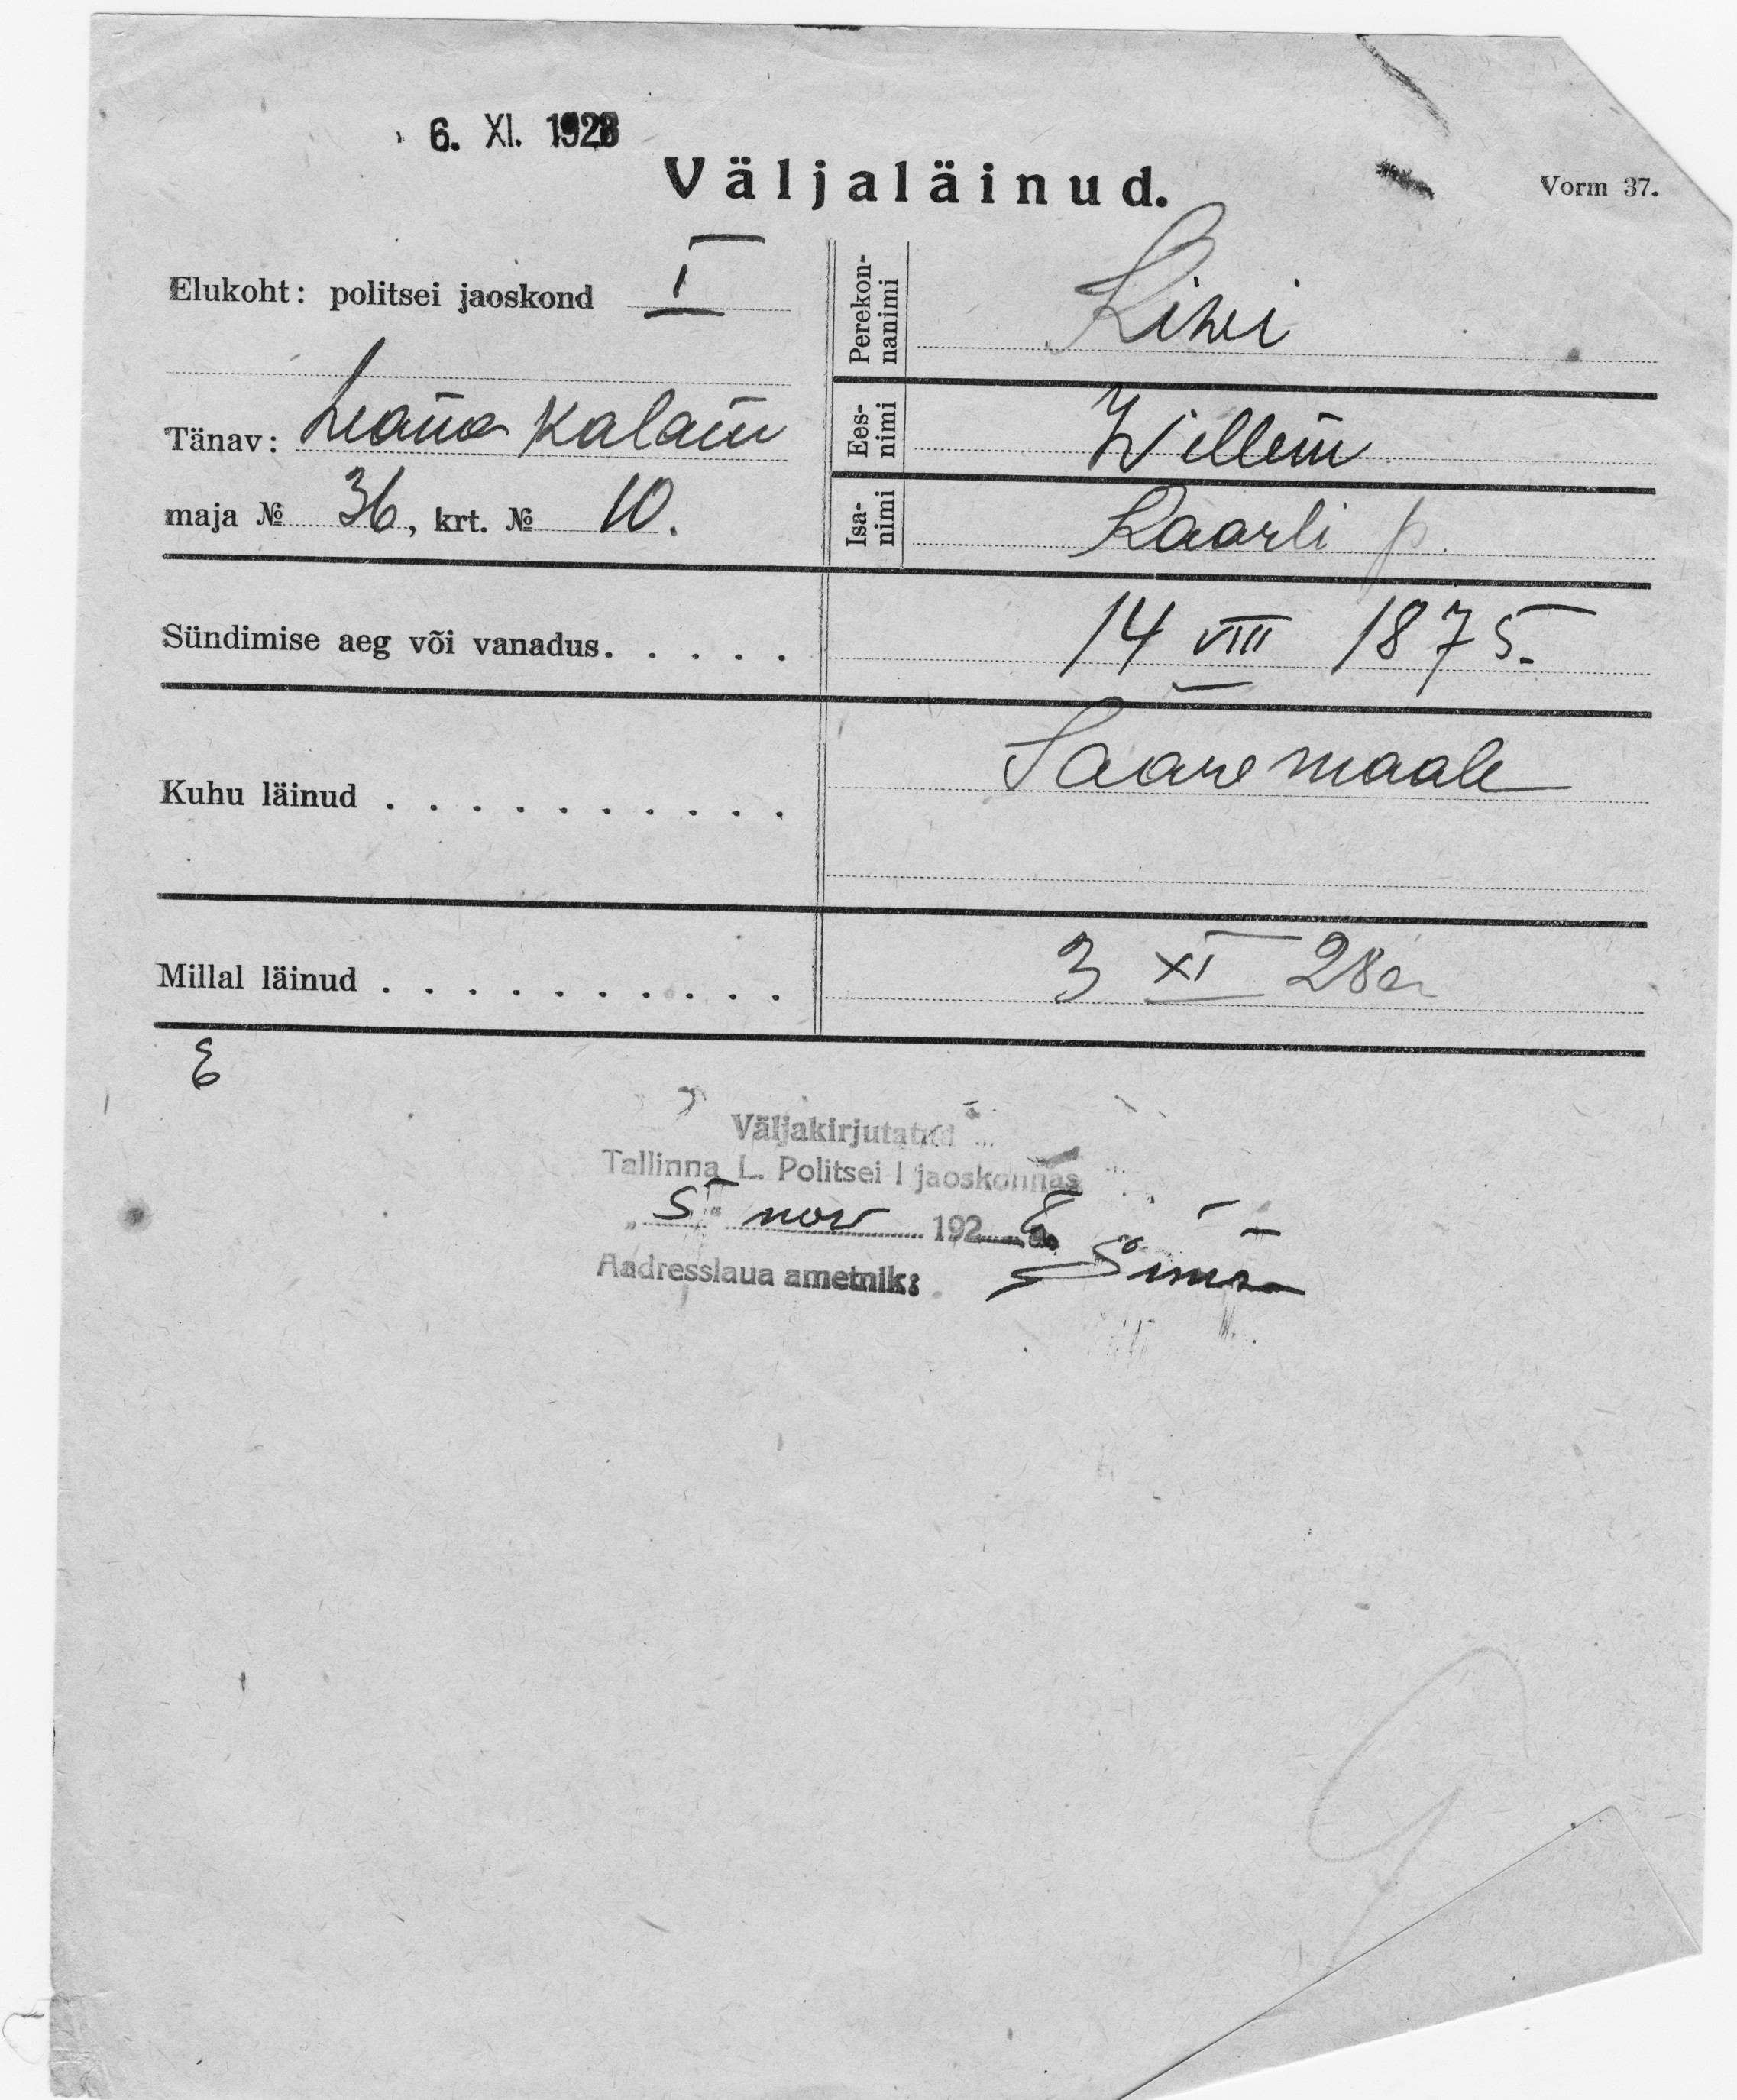 6. XI. 1928
Väljaläinud.
Vorm 37.
Elukoht: politsei jaoskond I
Tänav: Kalam
maja № 36, krt. № 10.
Perekonnanimi Kiwi
Eesnimi Willem
Isanimi Kaarli p.
Sündimise aeg või vanadus. . . . . 14 VIII 1875.
Kuhu läinud . . . . . . . . . . Saaremaale
Millal läinud . . . . . . . . . . 3 XI 28a
Väljakirjutatud
Tallinna L. Politsei I jaoskonnas
„5" nov 1928 a.
Aadresslaua ametnik: